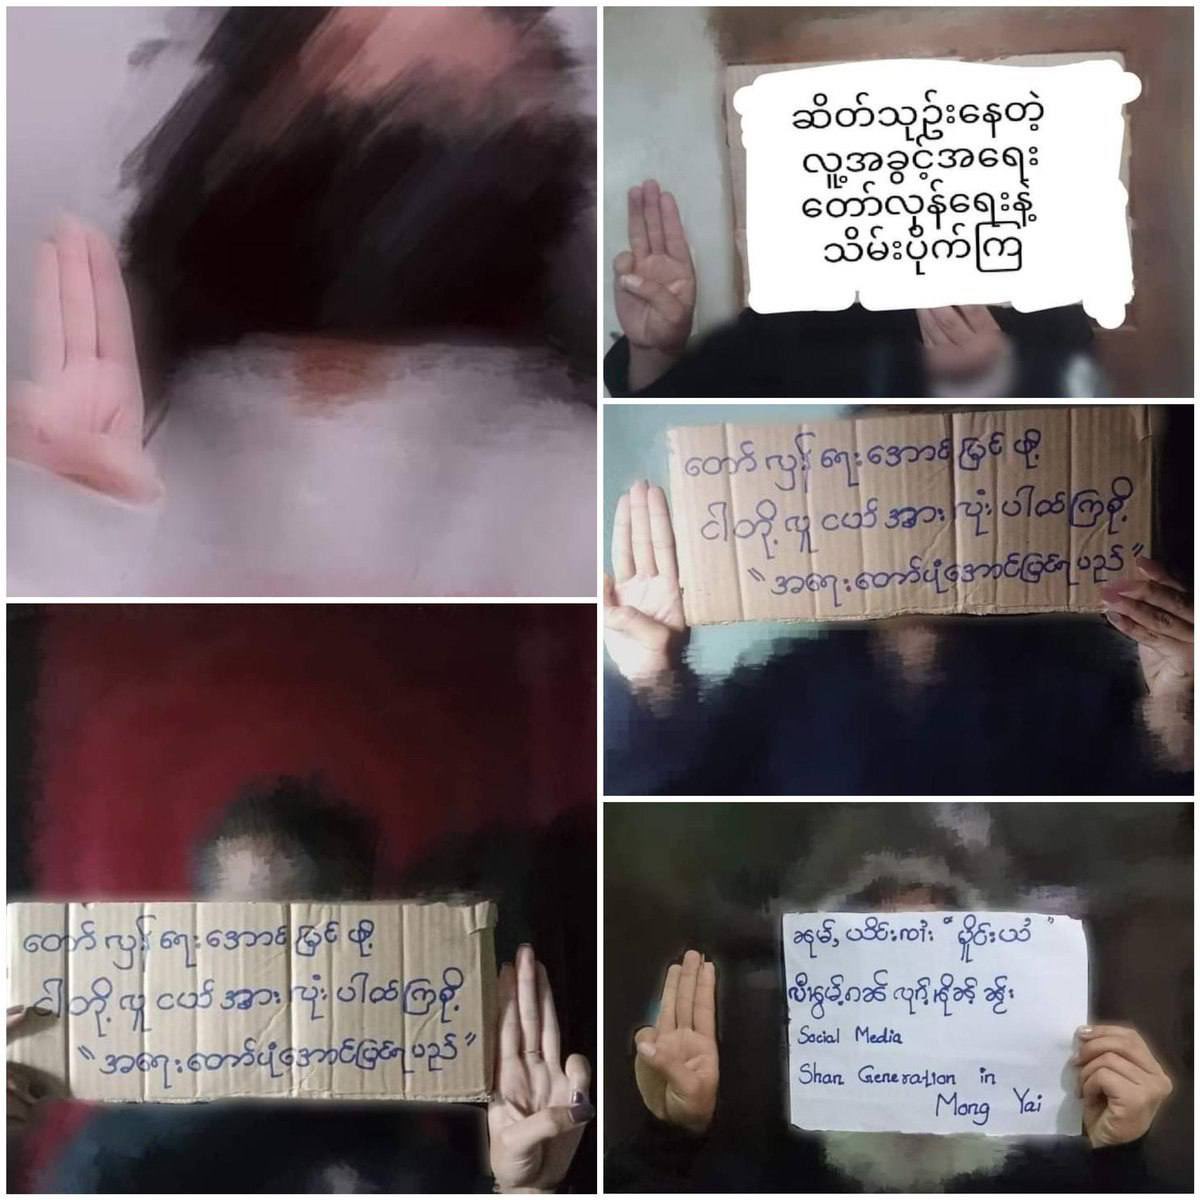 ဆိတ်သုဥ်းနေတဲ့
လူ့အခွင့်အရေး
တော်လှန်ရေးနဲ့
သိမ်းပိုက်ကြ
တော်လှန်ရေးအောင်မြင်ဖို့
ငါတို့လူငယ်အားလုံးပါဝင်ကြစို့
"အရေးတော်ပုံအောင်မြင်ရမည်"
တော်လှန်ရေးအောင်မြင်ဖို့
ငါတို့လူငယ်အားလုံးပါဝင်ကြစို့
"အရေးတော်ပုံအောင်မြင်ရမည်"
Social Media
Shan Generation in
Mong Yai